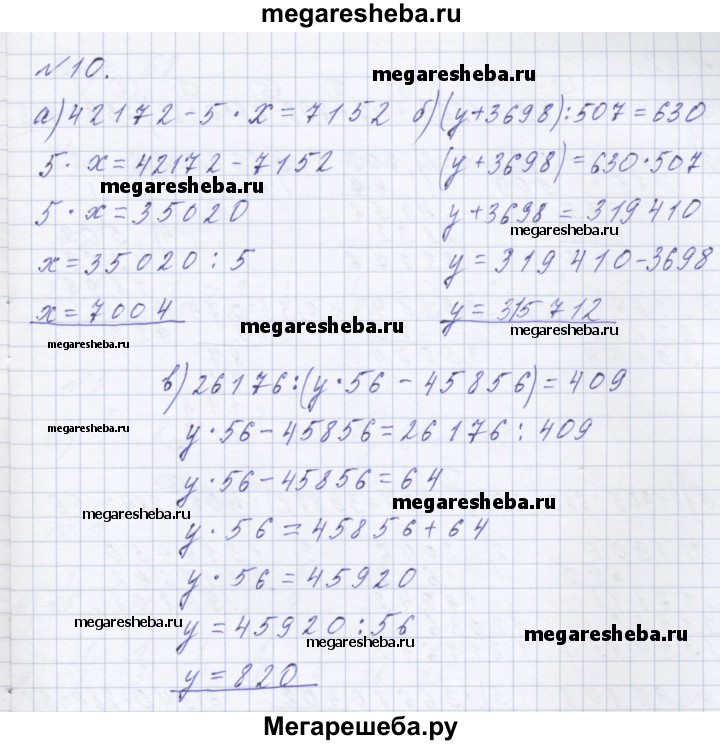 megaresheba.ru
№10.
megaresheba.ru
а) 42172 - 5 · x = 7152
б) (y + 3698) : 507 = 630
5 · x = 42172 - 7152
(y + 3698) = 630 · 507
megaresheba.ru
5 · x = 35020
y + 3698 = 319410
megaresheba.ru
x = 35020 : 5
y = 319410 - 3698
x = 7004
y = 315712
megaresheba.ru
megaresheba.ru
megaresheba.ru
в) 26176 : (y · 56 - 45856) = 409
megaresheba.ru
y · 56 - 45856 = 26176 : 409
y · 56 - 45856 = 64
megaresheba.ru
megaresheba.ru
y · 56 = 45856 + 64
y · 56 = 45920
megaresheba.ru
y = 45920 : 56
megaresheba.ru
megaresheba.ru
y = 820
Мегарешеба.ру